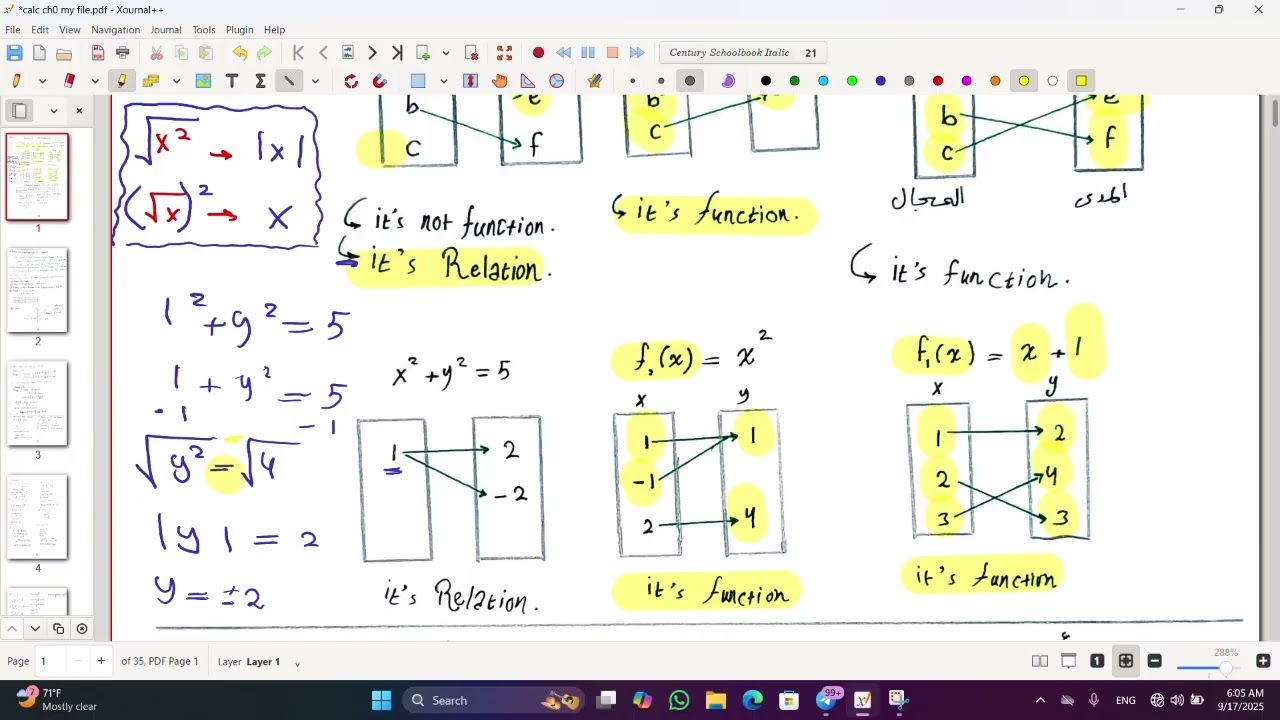 *calc ch0 my file.pdf - Xournal++
File Edit View Navigation Journal Tools Plugin Help
Century Schoolbook Italic 21
b e b c
c f c f
√x² → |x|
(√x)² → x
المجال المدى
it's not function. it's function.
it's Relation. it's function.
1² + y² = 5
1 + y² = 5
- 1 - 1
√y² = √4
|y| = 2
y = ±2
x² + y² = 5 f₁(x) = x² f₁(x) = x + 1
x y x y
1 2 1 1 1 2
- 2 -1 2 4
2 4 3 3
it's Relation. it's function it's function
1
2
3
4
Page 1 of 35, PDF Page 1 Layer Layer 1 288%
71°F
Mostly clear
Search
99+
ENG
6:05 AM
9/17/2025